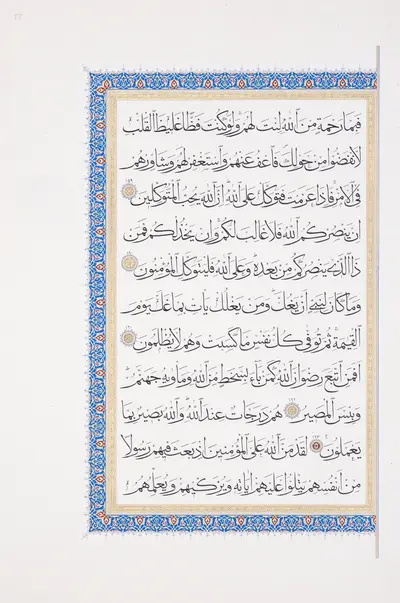 ٢٢
فَبِمَا رَحْمَةٍ مِنَ ٱللَّهِ لِنْتَ لَهُمْ وَلَوْ كُنْتَ فَظًّا غَلِيظَ ٱلْقَلْبِ
لَانْفَضُّوا مِنْ حَوْلِكَ فَاعْفُ عَنْهُمْ وَٱسْتَغْفِرْ لَهُمْ وَشَاوِرْهُمْ
فِي ٱلْأَمْرِ فَإِذَا عَزَمْتَ فَتَوَكَّلْ عَلَى ٱللَّهِ إِنَّ ٱللَّهَ يُحِبُّ ٱلْمُتَوَكِّلِينَ
إِنْ يَنْصُرْكُمُ ٱللَّهُ فَلَا غَالِبَ لَكُمْ وَإِنْ يَخْذُلْكُمْ فَمَنْ
ذَا ٱلَّذِي يَنْصُرُكُمْ مِنْ بَعْدِهِ وَعَلَى ٱللَّهِ فَلْيَتَوَكَّلِ ٱلْمُؤْمِنُونَ
وَمَا كَانَ لِنَبِيٍّ أَنْ يَغُلَّ وَمَنْ يَغْلُلْ يَأْتِ بِمَا غَلَّ يَوْمَ
ٱلْقِيمَةِ ثُمَّ تُوَفَّى كُلُّ نَفْسٍ مَا كَسَبَتْ وَهُمْ لَا يُظْلَمُونَ
أَفَمَنِ ٱتَّبَعَ رِضْوَانَ ٱللَّهِ كَمَنْ بَاءَ بِسَخَطٍ مِنَ ٱللَّهِ وَمَأْوَيهُ جَهَنَّمُ
وَبِئْسَ ٱلْمَصِيرُ هُمْ دَرَجَاتٌ عِنْدَ ٱللَّهِ وَٱللَّهُ بَصِيرٌ بِمَا
يَعْمَلُونَ لَقَدْ مَنَّ ٱللَّهُ عَلَى ٱلْمُؤْمِنِينَ إِذْ بَعَثَ فِيهِمْ رَسُولًا
مِنْ أَنْفُسِهِمْ يَتْلُوا عَلَيْهِمْ أَيَاتِهِ وَيُزَكِّيهِمْ وَيُعَلِّمُهُمُ